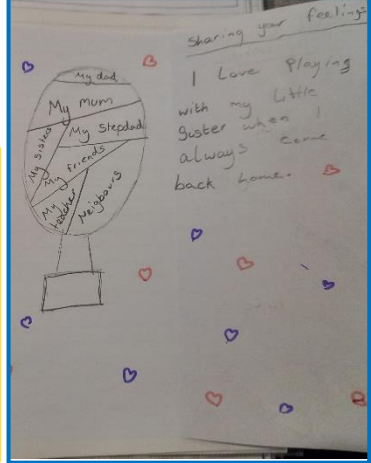 My dad
My mum
My sister
My stepdad
My friends
My teacher
Neighbours
Sharing your feelings
I Love Playing
with my Little
Sister when I
always come
back home.